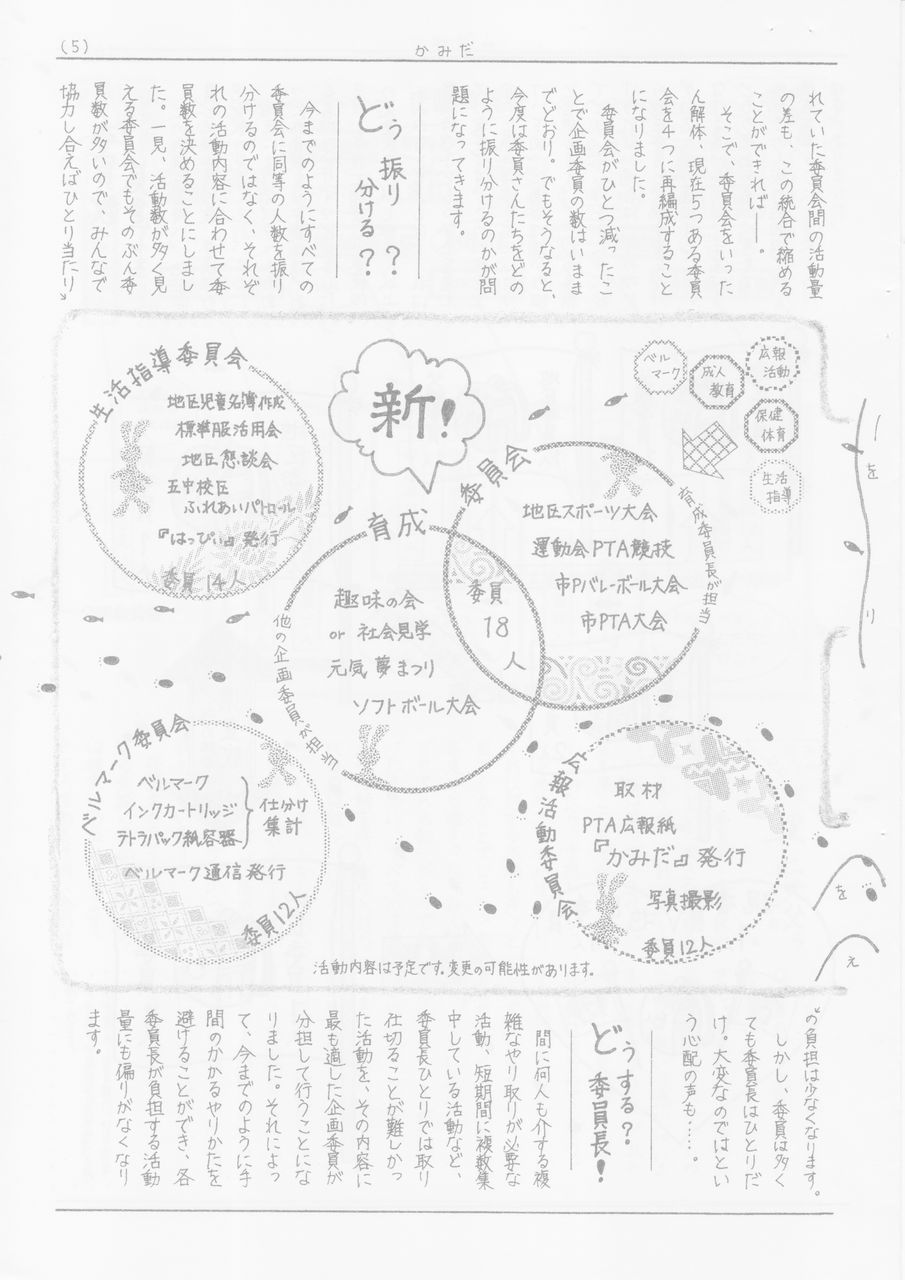 (5)
かみだ
れていた委員会間の活動量
の差も、この統合で縮める
ことができれば――。
そこで、委員会をいった
ん解体、現在5つある委員
会を4つに再編成すること
になりました。
委員会がひとつ減ったこ
とで企画委員の数はいまま
でどおり。でもそうなると、
今度は委員さんたちをどの
ように振り分けるのかが問
題になってきます。
どう振り
分ける??
今までのようにすべての
委員会に同等の人数を振り
分けるのではなく、それぞ
れの活動内容に合わせて委
員数を決めることにしまし
た。一見、活動数が多く見
える委員会でもそのぶん委
員数が多いので、みんなで
協力し合えばひとり当たり
ベル
マーク
成人
教育
広報
活動
保健
体育
生活
指導
新!
生活指導委員会
地区児童名簿作成
標準服活用会
地区懇談会
五中校区
ふれあいパトロール
『はっぴぃ』発行
委員14人
育成
委員会
育成委員長が担当
地区スポーツ大会
運動会PTA競技
市Pバレーボール大会
市PTA大会
委員
18
人
他の企画委員が担当
趣味の会
or 社会見学
元気夢まつり
ソフトボール大会
ベルマーク委員会
ベルマーク
インクカートリッジ
テトラパック紙容器
仕分け
集計
ベルマーク通信発行
委員12人
広報活動委員会
取材
PTA広報紙
『かみだ』発行
写真撮影
委員12人
活動内容は予定です。変更の可能性があります。
を
り
を
え
の負担は少なくなります。
しかし、委員は多く
ても委員長はひとりだ
け。大変なのではとい
う心配の声も……。
どうする?
委員長!
間に何人も介する複
雑なやり取りが必要な
活動、短期間に複数集
中している活動など、
委員長ひとりでは取り
仕切ることが難しかっ
た活動を、その内容に
最も適した企画委員が
分担して行うことにな
りました。それによっ
て、今までのように手
間のかかるやりかたを
避けることができ、各
委員長が負担する活動
量にも偏りがなくなり
ます。